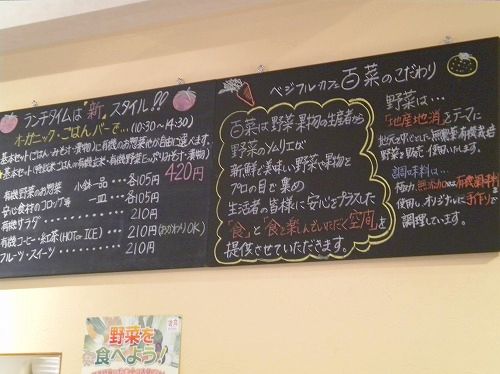 ランチタイムは"新"スタイル!!
オーガニック・ごはんバーで… (10:30~14:30)
基本セット(ごはん・みそ汁・漬物)に有機のお惣菜が自由に選べます。
基本セット
420円
有機野菜のお惣菜 小鉢一品… 各105円
安心食材のコロッケ等 一皿… 各105円
有機サラダ ……… 210円
有機コーヒー・紅茶(HOT or ICE)… 210円(おかわりOK)
フルーツ・スイーツ ……… 210円
ベジフルカフェ 百菜のこだわり
百菜は野菜果物の生産者から
野菜のソムリエが
新鮮で美味しい野菜や果物を
プロの目で集め
生活者の皆様に安心をプラスした
「食」と「食を楽しんでいただく空間」を
提供させていただきます。
野菜は…
「地産地消」をテーマに
地元を中心とした無農薬・有機栽培
野菜を販売・使用いたします。
調味料は…
極力無添加の有機調味料を
使用し、オリジナルに手作りで
調理しています。
野菜を
食べよう!